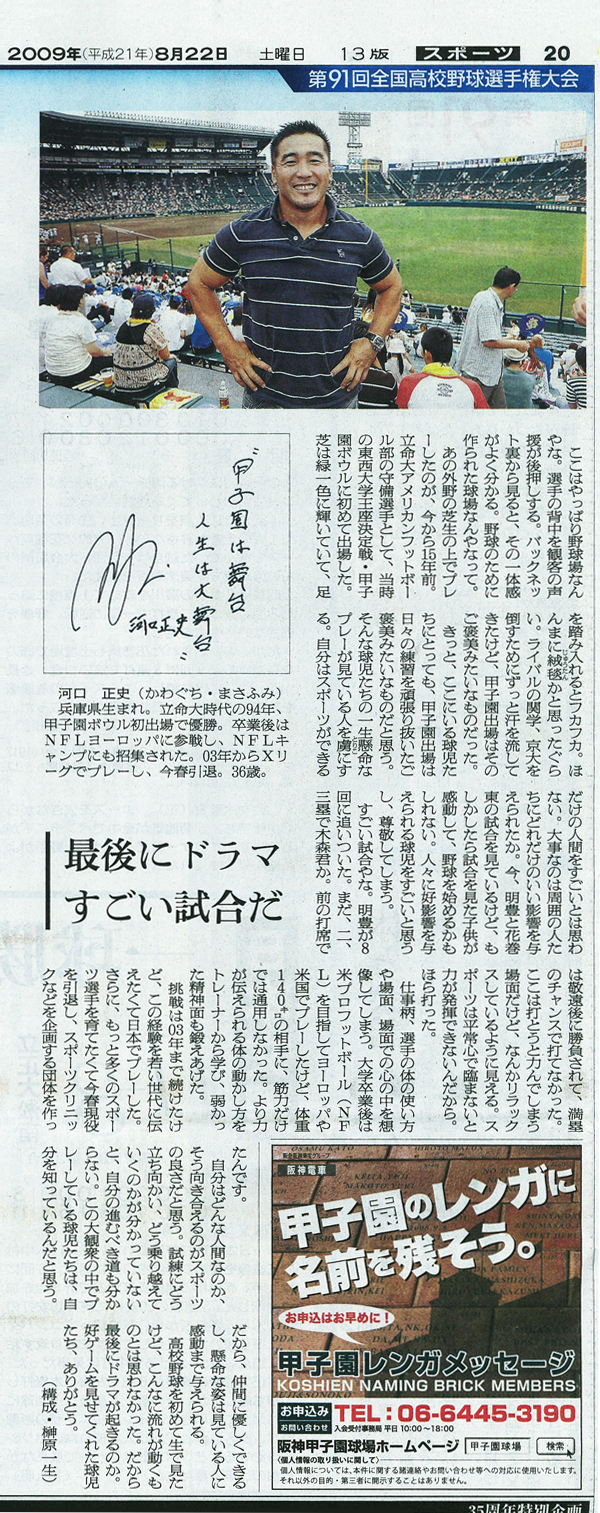 2009年(平成21年)8月22日 土曜日 13版 スポーツ 20
第91回全国高校野球選手権大会
“甲子園は舞台
人生は大舞台”
河口正史
河口 正史(かわぐち・まさふみ)
兵庫県生まれ。立命大時代の94年、
甲子園ボウル初出場で優勝。卒業後は
NFLヨーロッパに参戦し、NFLキ
ャンプにも招集された。03年からXリ
ーグでプレーし、今春引退。36歳。
最後にドラマ
すごい試合だ
ここはやっぱり野球場なん
やな。選手の背中を観客の声
援が後押しする。バックネッ
ト裏から見ると、その一体感
がよく分かる。野球のために
作られた球場なんやなって。
あの外野の芝生の上でプレ
ーしたのが、今から15年前。
立命大アメリカンフットボー
ル部の守備選手として、当時
の東西大学王座決定戦・甲子
園ボウルに初めて出場した。
芝は緑一色に輝いていて、足
を踏み入れるとフカフカ。ほ
んまに絨毯かと思ったぐら
い。ライバルの関学、京大を
倒すためにずっと汗を流して
きたけど、甲子園出場はその
ご褒美みたいなものだった。
きっと、ここにいる球児た
ちにとっても、甲子園出場は
日々の練習を頑張り抜いたご
褒美みたいなものだと思う。
そんな球児たちの一生懸命な
プレーが見ている人を虜にす
る。自分はスポーツができる
だけの人間をすごいとは思わ
ない。大事なのは周囲の人た
ちにどれだけのいい影響を与
えられたか。今、明豊と花巻
東の試合を見ているけど、も
しかしたら試合を見た子供が
感動して、野球を始めるかも
しれない。人々に好影響を与
えられる球児をすごいと思う
し、尊敬してしまう。
すごい試合やな。明豊が8
回に追いついた。まだ、二、
三塁で木森君か。前の打席で
は敬遠後に勝負されて、満塁
のチャンスで打てなかった。
ここは打とうと力んでしまう
場面だけど、なんかリラック
スしているように見える。ス
ポーツは平常心で臨まないと
力が発揮できないんだから。
ほら打った。
仕事柄、選手の体の使い方
や場面、場面での心の中を想
像してしまう。大学卒業後は
米プロフットボール(NF
L)を目指してヨーロッパや
米国でプレーしたけど、体重
140㌔の相手に、筋力だけ
では通用しなかった。より力
が伝えられる体の動かし方を
トレーナーから学び、弱かっ
た精神面も鍛えあげた。
挑戦は03年まで続けたけ
ど、この経験を若い世代に伝
えたくて日本でプレーした。
さらに、もっと多くのスポー
ツ選手を育てたくて今春現役
を引退し、スポーツクリニッ
クなどを企画する団体を作っ
たんです。
自分はどんな人間なのか、
そう向き合えるのがスポーツ
の良さだと思う。試練にどう
立ち向かい、どう乗り越えて
いくのかが分かっていない
と、自分の進むべき道も分か
らない。この大観衆の中でプ
レーしている球児たちは、自
分を知っているんだと思う。
だから、仲間に優しくできる
し、懸命な姿は見ている人に
感動まで与えられる。
高校野球を初めて生で見た
けど、こんなに流れが動くも
のとは思わなかった。だから
最後にドラマが起きるのか。
好ゲームを見せてくれた球児
たち、ありがとう。
(構成・榊原一生)
阪神電車
甲子園のレンガに
名前を残そう。
お申込はお早めに!
甲子園レンガメッセージ
KOSHIEN NAMING BRICK MEMBERS
お申込み
お問い合わせ
TEL:06-6445-3190
入会受付事務局 平日 10:00〜18:00
阪神甲子園球場ホームページ 甲子園球場 検索
〈個人情報の取り扱いに関して〉
個人情報については、本件に関する諸連絡やお問い合わせ等への対応に使用いたします。
それ以外の目的・第三者に開示することはありません。
35周年特別企画